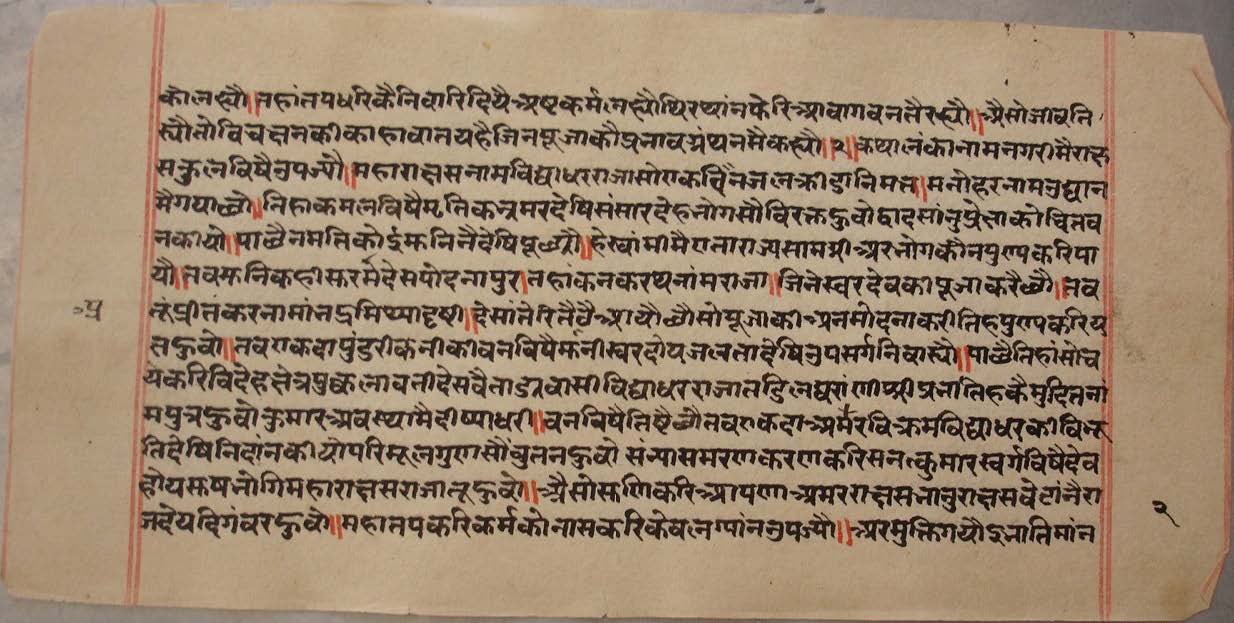 कौ लह्यौ॥ तहां तप धरिकै निवारि दियै अष्टकर्म लह्यौ थिरथांन फेरि आवागवन तै रह्यौ॥ अैसो जीवनि
ह्यौ तो विचक्षन की का हा वात यहै जिनपूजा कौ प्रभाव ग्रंथन मै कह्यौ॥२॥ कथा लंका नाम नगरी मै राक्ष
स कुल विषै उपज्यौ॥ महाराक्षस नाम विद्याधर राजा सो एक दिन जलक्रीडा निमत्त॥ मनोहर नाम उद्यान
मै गया छो॥ तिहा कमल विषै मृतिक भ्रमर देषि संसार देह भोग सौ विरक्त हुवो द्वादसांनुप्रेक्षा को चितव
न कीयो॥ पाछै नमति कोई मुनि नै देषि पूछी॥ हे स्वांमी मै एता राज्य सामग्री अर भोग कौन पुण्य करि पा
यौ॥ तव मुनि कही सुरर्मदेस पोदनापुर॥ तहां कनकरथ नांम राजा॥ जिनेस्वरदेव की पूजा करै छौ॥ तव
तूं प्रीतंकर नामां भद्र मिथ्यादृष्टी॥ देसांतरि तै वै आयौ छौ सो पूजा की अनमोदना करी तिह पुण्य करि य
क्ष हुवो॥ तव एकदा पुंडरीकनी की वन विषै मुनीस्वर दोय जलता देषि उपसर्ग निवार्यौ॥ पाछै तिहां सो च
य करि विदेह क्षेत्र पुष्कलावती देस वैताड वासी विद्याधर राजा तडिल्लंघ रांणी श्रीप्रभा तिहकै मुदित ना
म पुत्र हुवो कुमार अवस्था मै दीष्या धरी॥ वन विषै तिष्टै छौ तव एकदा अमरविक्रम विद्याधर की विभू
ति देषि निदांन कीयो परि मूलगुण सौं च्रुत न हुवो संन्यास मरण करण करि सनत्कुमार स्वर्ग विषै देव
होय सुष भोगि महाराक्षस राजा तू हुवो॥ अैसो सुणि करि आपणा अमरराक्षस भानुराक्षस वेटांनै रा
ज देय दिगंवर हुवो॥ महा तप करि कर्म को नास करि केवलग्यांन उपज्यौ॥ अर मुक्ति गयौ ३ जातिमांन
२